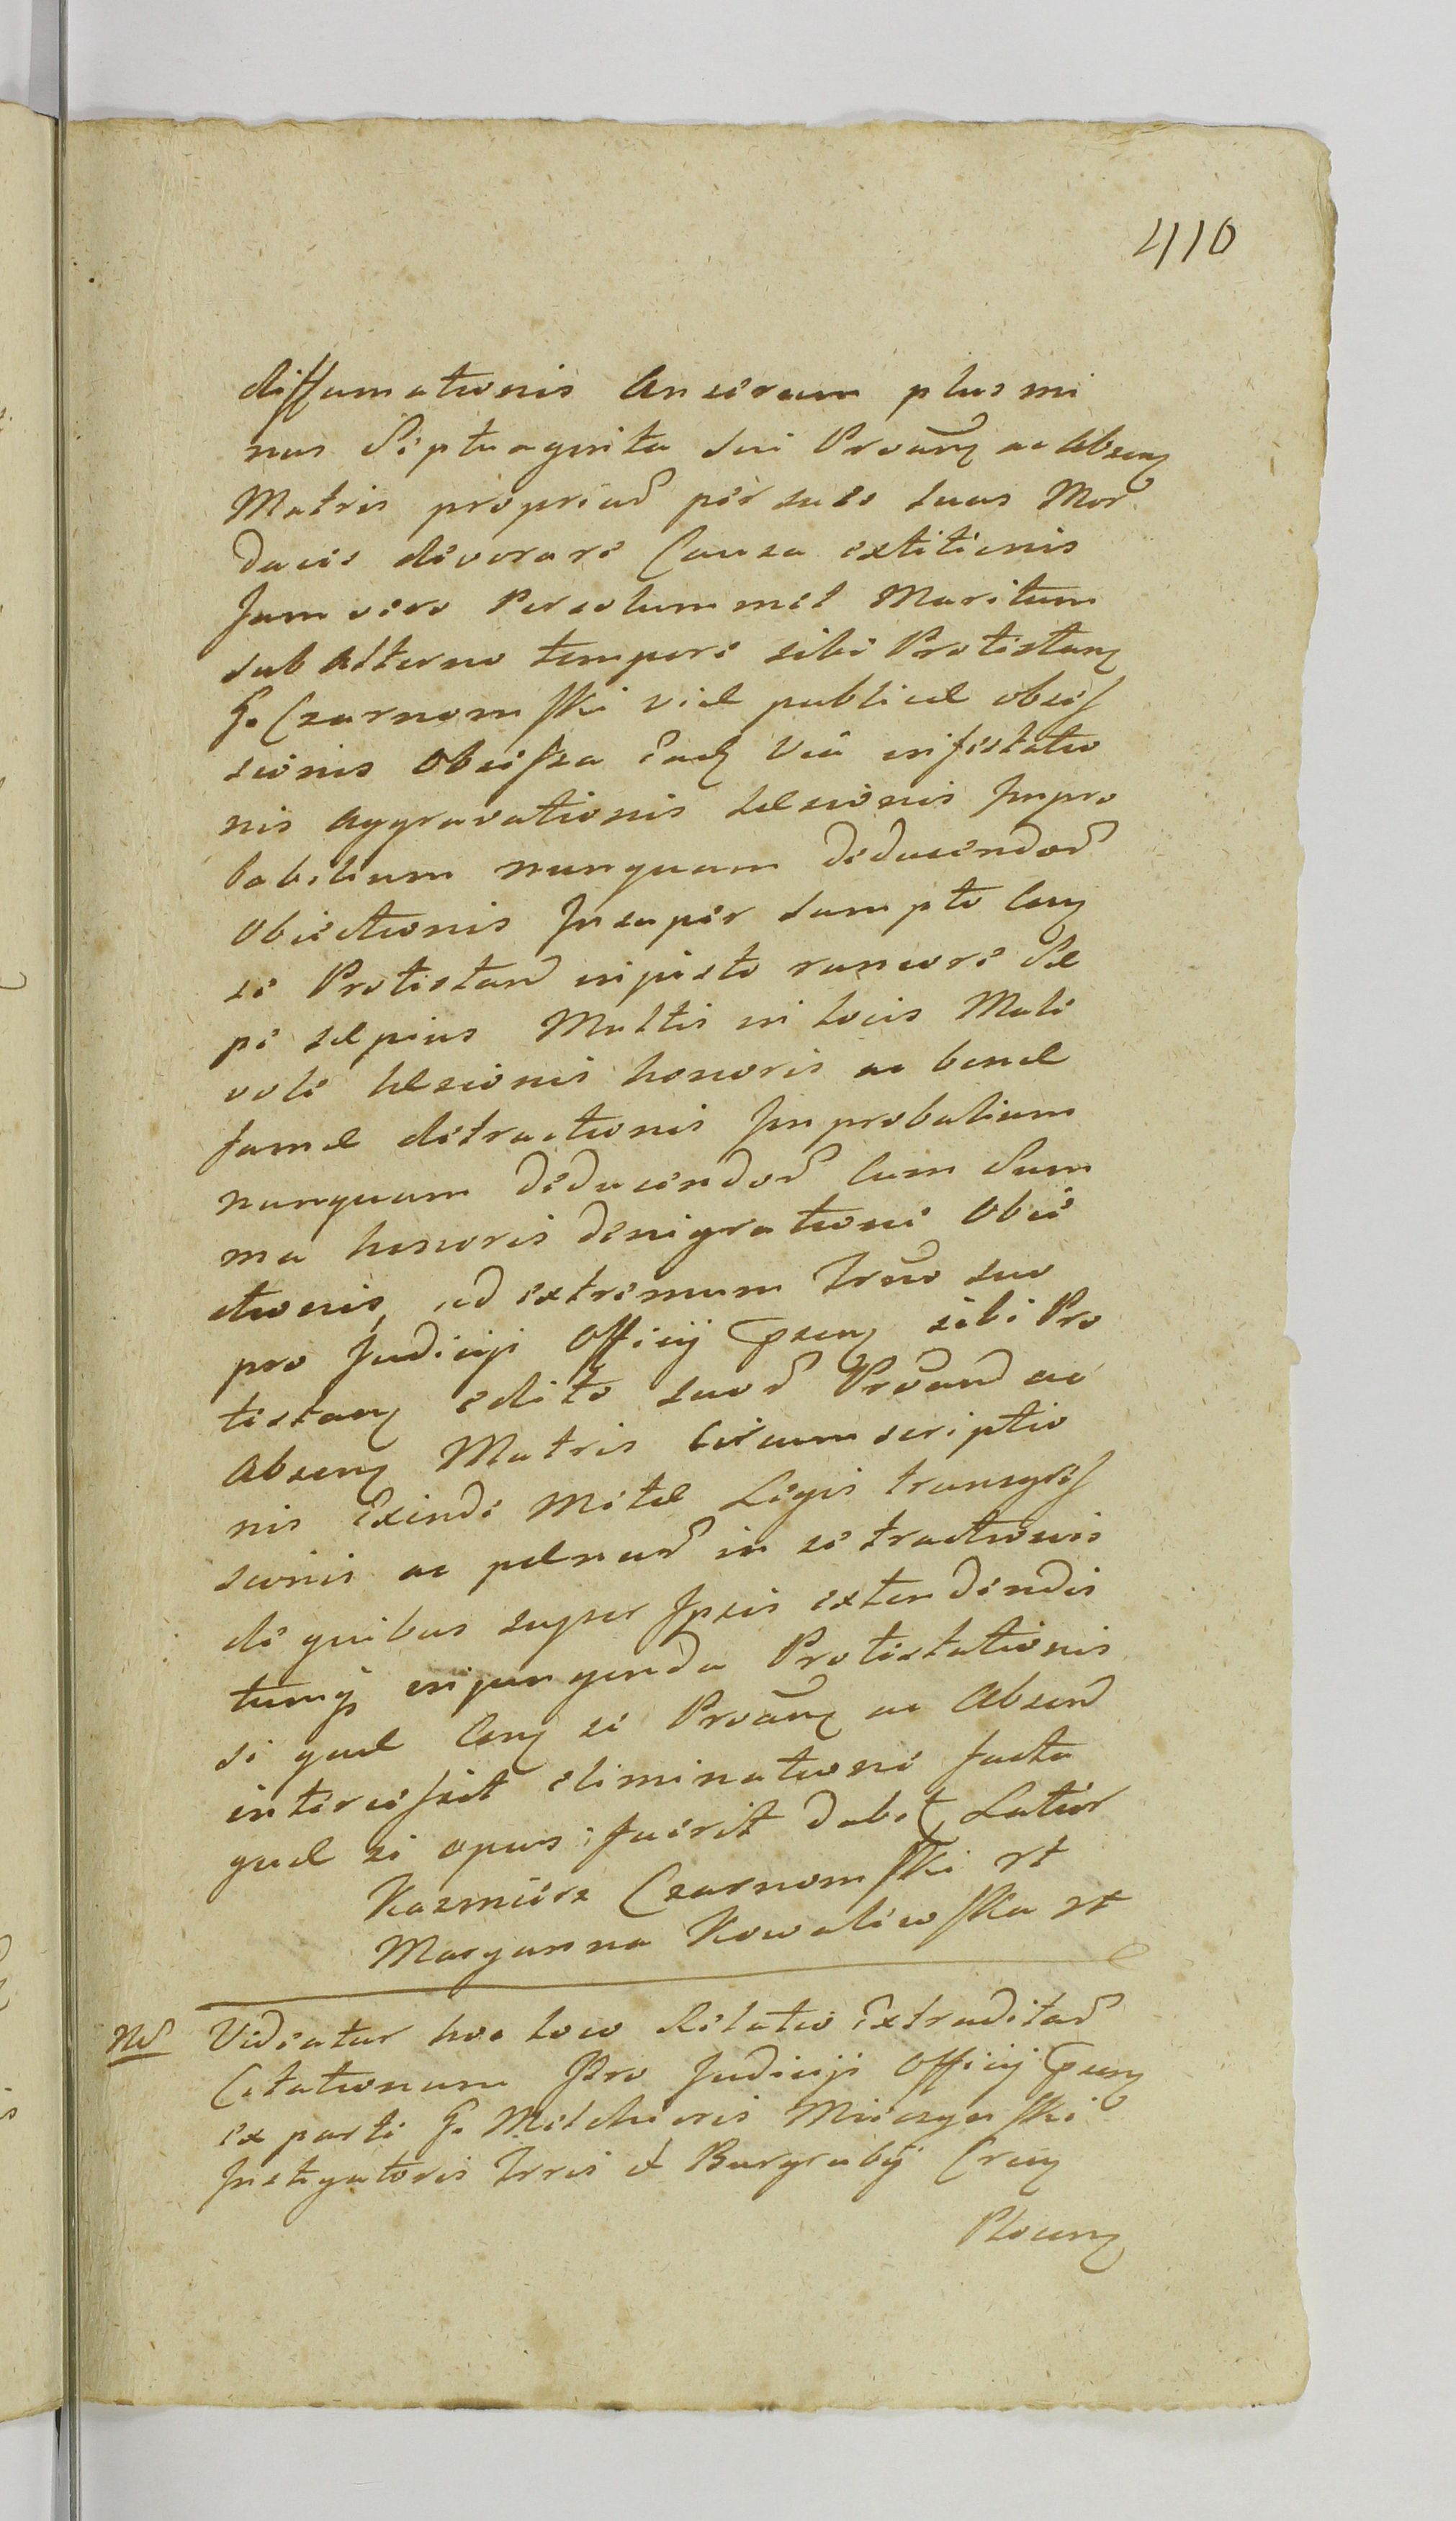 410
diffamationis Anserum plus mi
nus Septuaginta sui Protan ac Absen
Matris propriar per sues suas Mor
daces devorare Causa extitionis
Jam vero Persolummet Maritum
sub Alterno tempore sibi Protestan
G. Czarnomski viæ publicæ obses
sionis Obcessa eaq via infestatio
nis aggravationis læsionis Impro
babilium nunquam deducendor
Obiectionis Insuper sumpto Con
se Protestand injusto rancore Sæ
pe sæpius Multis in locis Male
vole læsionis honoris ac bonæ
famæ detractionis Improbalium
nunquam deducendor Cum Sum
ma honoris denigratione Obie
ctionis, ad extremum Trno suo
pro Judicijs Officij psen sibi Pro
testan edito suor Protand ac
Absen Matris Circumscriptio
nis Exinde Metæ Legis transgres
sionis ac pænar in se tractionis
de quibus super Ipsis extendendis
tumq injungenda Protestationis
si quæ Con se Protan ac Absend
intercessit eliminatione facta
quæ si opus fuerit dabit Latior
Kazmierz Czarnomski rt
Maryanna Kowalewska rt
NB Videatur hoc loco Relatio Extraditar
Citationum Pro Judicijs Officij psen
ex parte G. Melchioris Mieczynski
Instigatoris Trris et Burgrabij Cren
Plocen